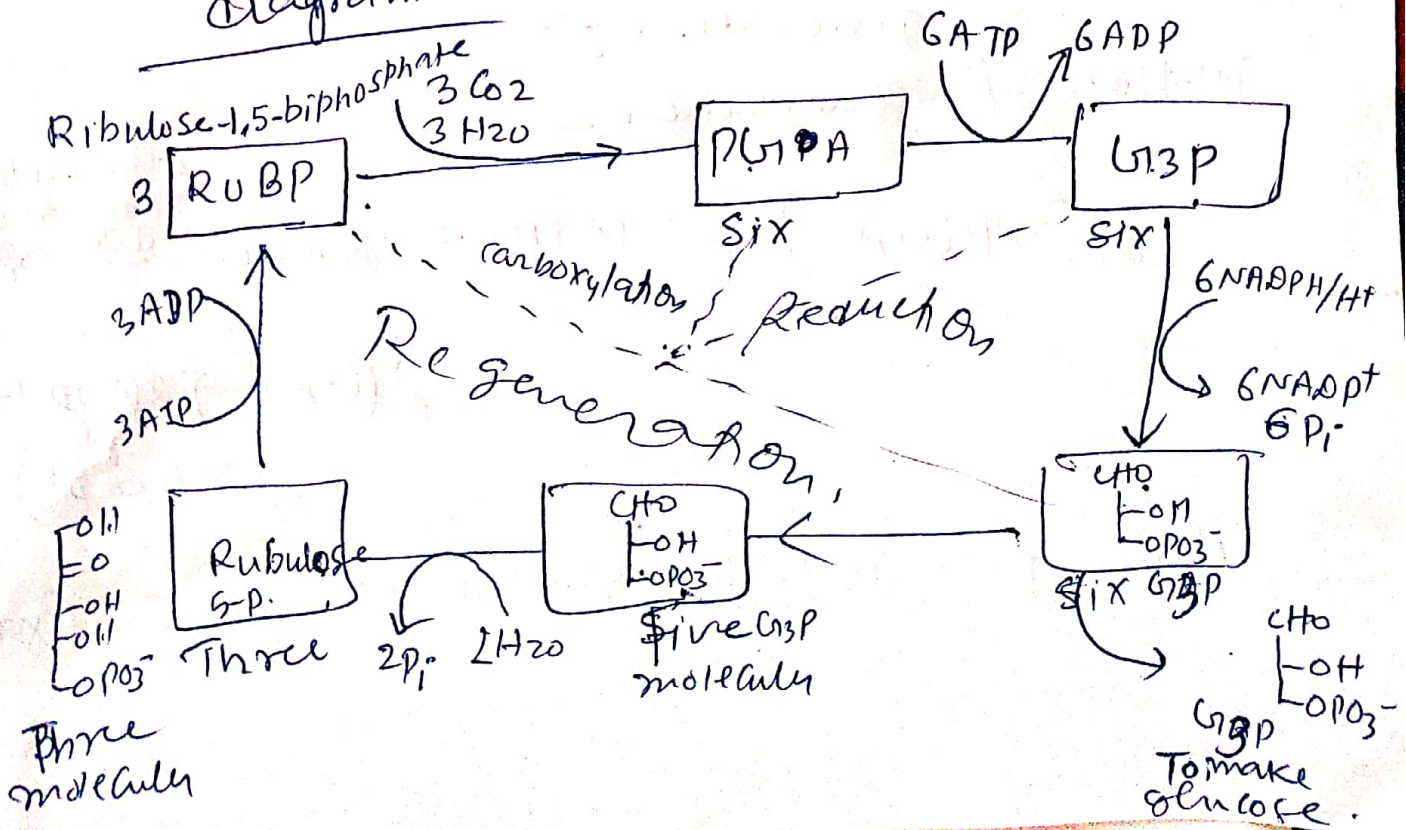 Diagram
Ribulose-1,5-biphosphate
3 CO2
3 H2O
6ATP
6ADP
3
RUBP
PGPA
Six
G3P
six
carboxylation
Reduction
Regeneration
6NADPH/H+
6NADP+
6 Pi
3ADP
3ATP
CHO
OH
OPO3-
Six G3P
CHO
OH
OPO3-
G3P
To make
glucose.
CHO
OH
OPO3-
five G3P
molecules
2Pi
2H2O
Rubulose
5-p.
Three
OH
=O
OH
OH
OPO3-
Three
molecules